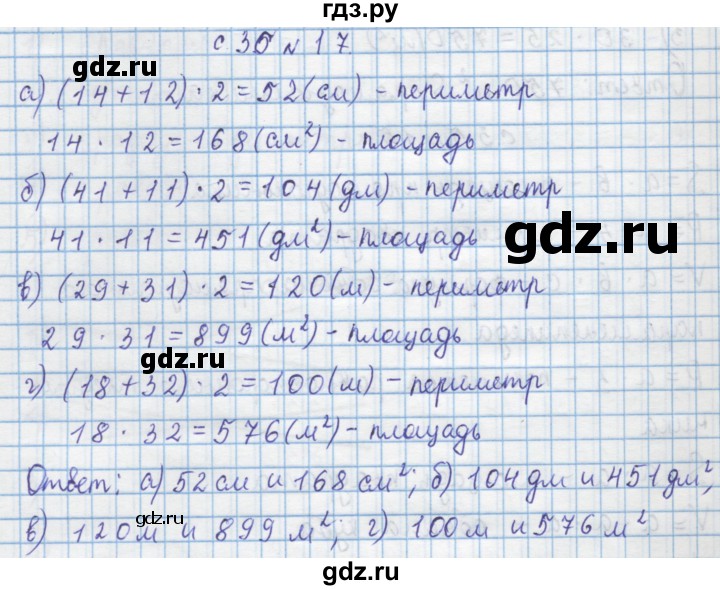 гдз.ру
с 35 N 17.
gdz.ru
а) (14+12) · 2 = 52 (см) – периметр
14 · 12 = 168 (см²) – площадь
б) (41 + 11) · 2 = 104 (дм) – периметр
41 · 11 = 451 (дм²) – площадь
gdz.ru
в) (29 + 31) · 2 = 120 (м) – периметр
29 · 31 = 899 (м²) – площадь
gdz.ru
г) (18 + 32) · 2 = 100 (м) – периметр
18 · 32 = 576 (м²) – площадь
Ответ: а) 52 см и 168 см²; б) 104 дм и 451 дм²,
в) 120м и 899 м²; г) 100м и 576 м²
gdz.ru
гдз.ру